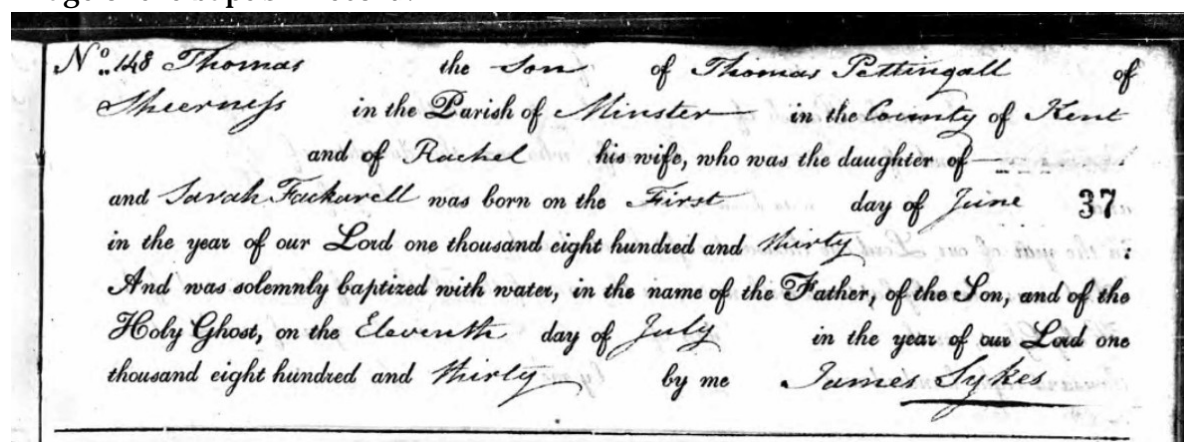 No. 148 Thomas the Son of Thomas Pettingall of
Sheerness in the Parish of Minster in the County of Kent
and of Rachel his wife, who was the daughter of
and Sarah Fackarell was born on the First day of June 37
in the year of our Lord one thousand eight hundred and thirty
And was solemnly baptized with water, in the name of the Father, of the Son, and of the
Holy Ghost, on the Eleventh day of July in the year of our Lord one
thousand eight hundred and thirty by me James Sykes